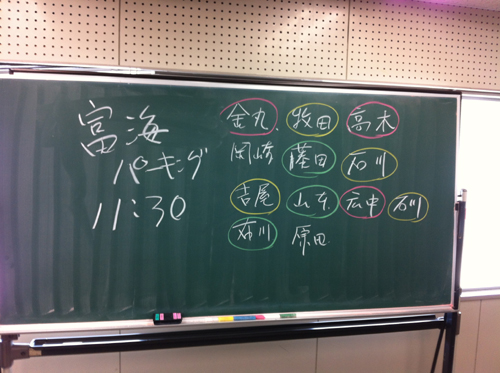 富海
パーキング
11:30
金丸 牧田 高木
岡崎 藤田 石川
吉尾 山本 広中 石川
布川 原田